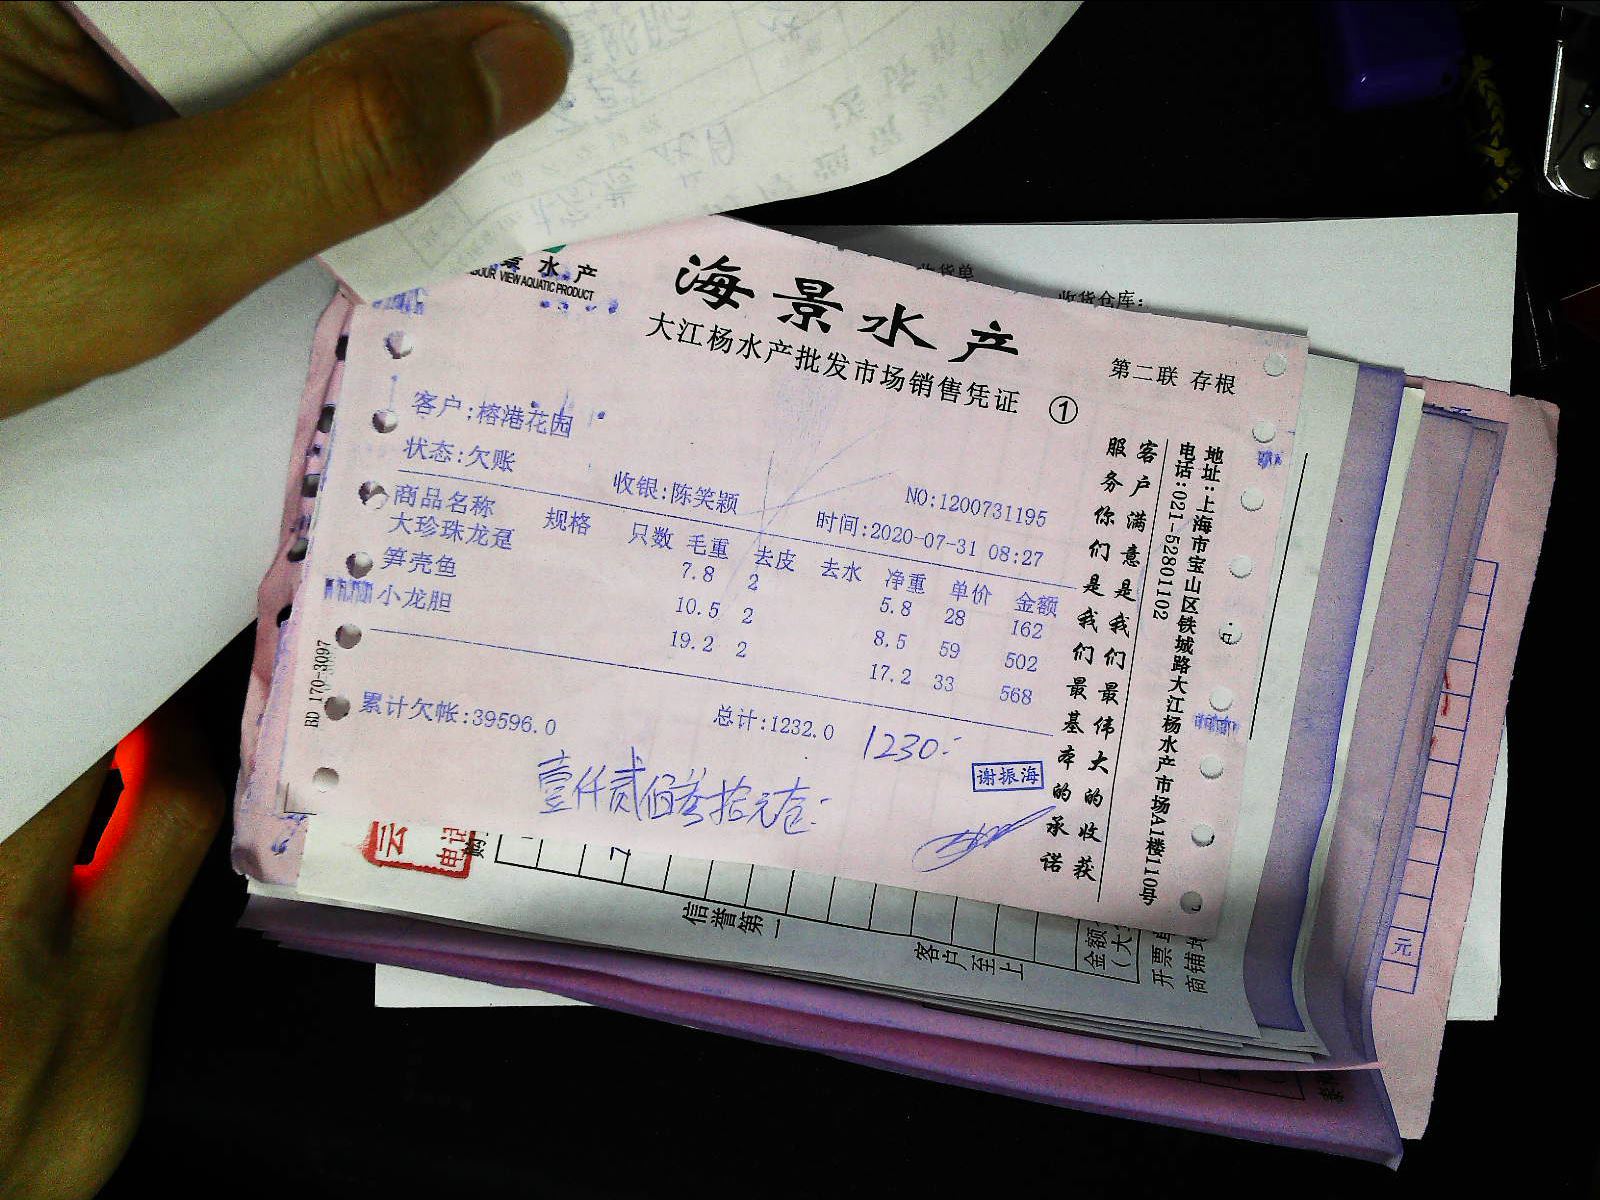 景水产
BOUR VIEW AQUATIC PRODUCT
海景水产
大江杨水产批发市场销售凭证 ①
第二联 存根
客户:榕港花园
状态:欠账
收银:陈笑颖
NO:1200731195
时间:2020-07-31 08:27
商品名称 规格 只数 毛重 去皮 去水 净重 单价 金额
大珍珠龙趸 7.8 2 5.8 28 162
笋壳鱼 10.5 2 8.5 59 502
小龙胆 19.2 2 17.2 33 568
累计欠帐:39596.0 总计:1232.0 1230.-
壹仟贰佰叁拾元
谢振海
客户满意是我们最伟大的收获
服务你们是我们最基本的承诺
地址:上海市宝山区铁城路大江杨水产市场A1楼110号
电话:021-52801102
BD 170-3097
收货单
收货仓库:
信誉第一
客户至上
金额
开票
商铺地
元